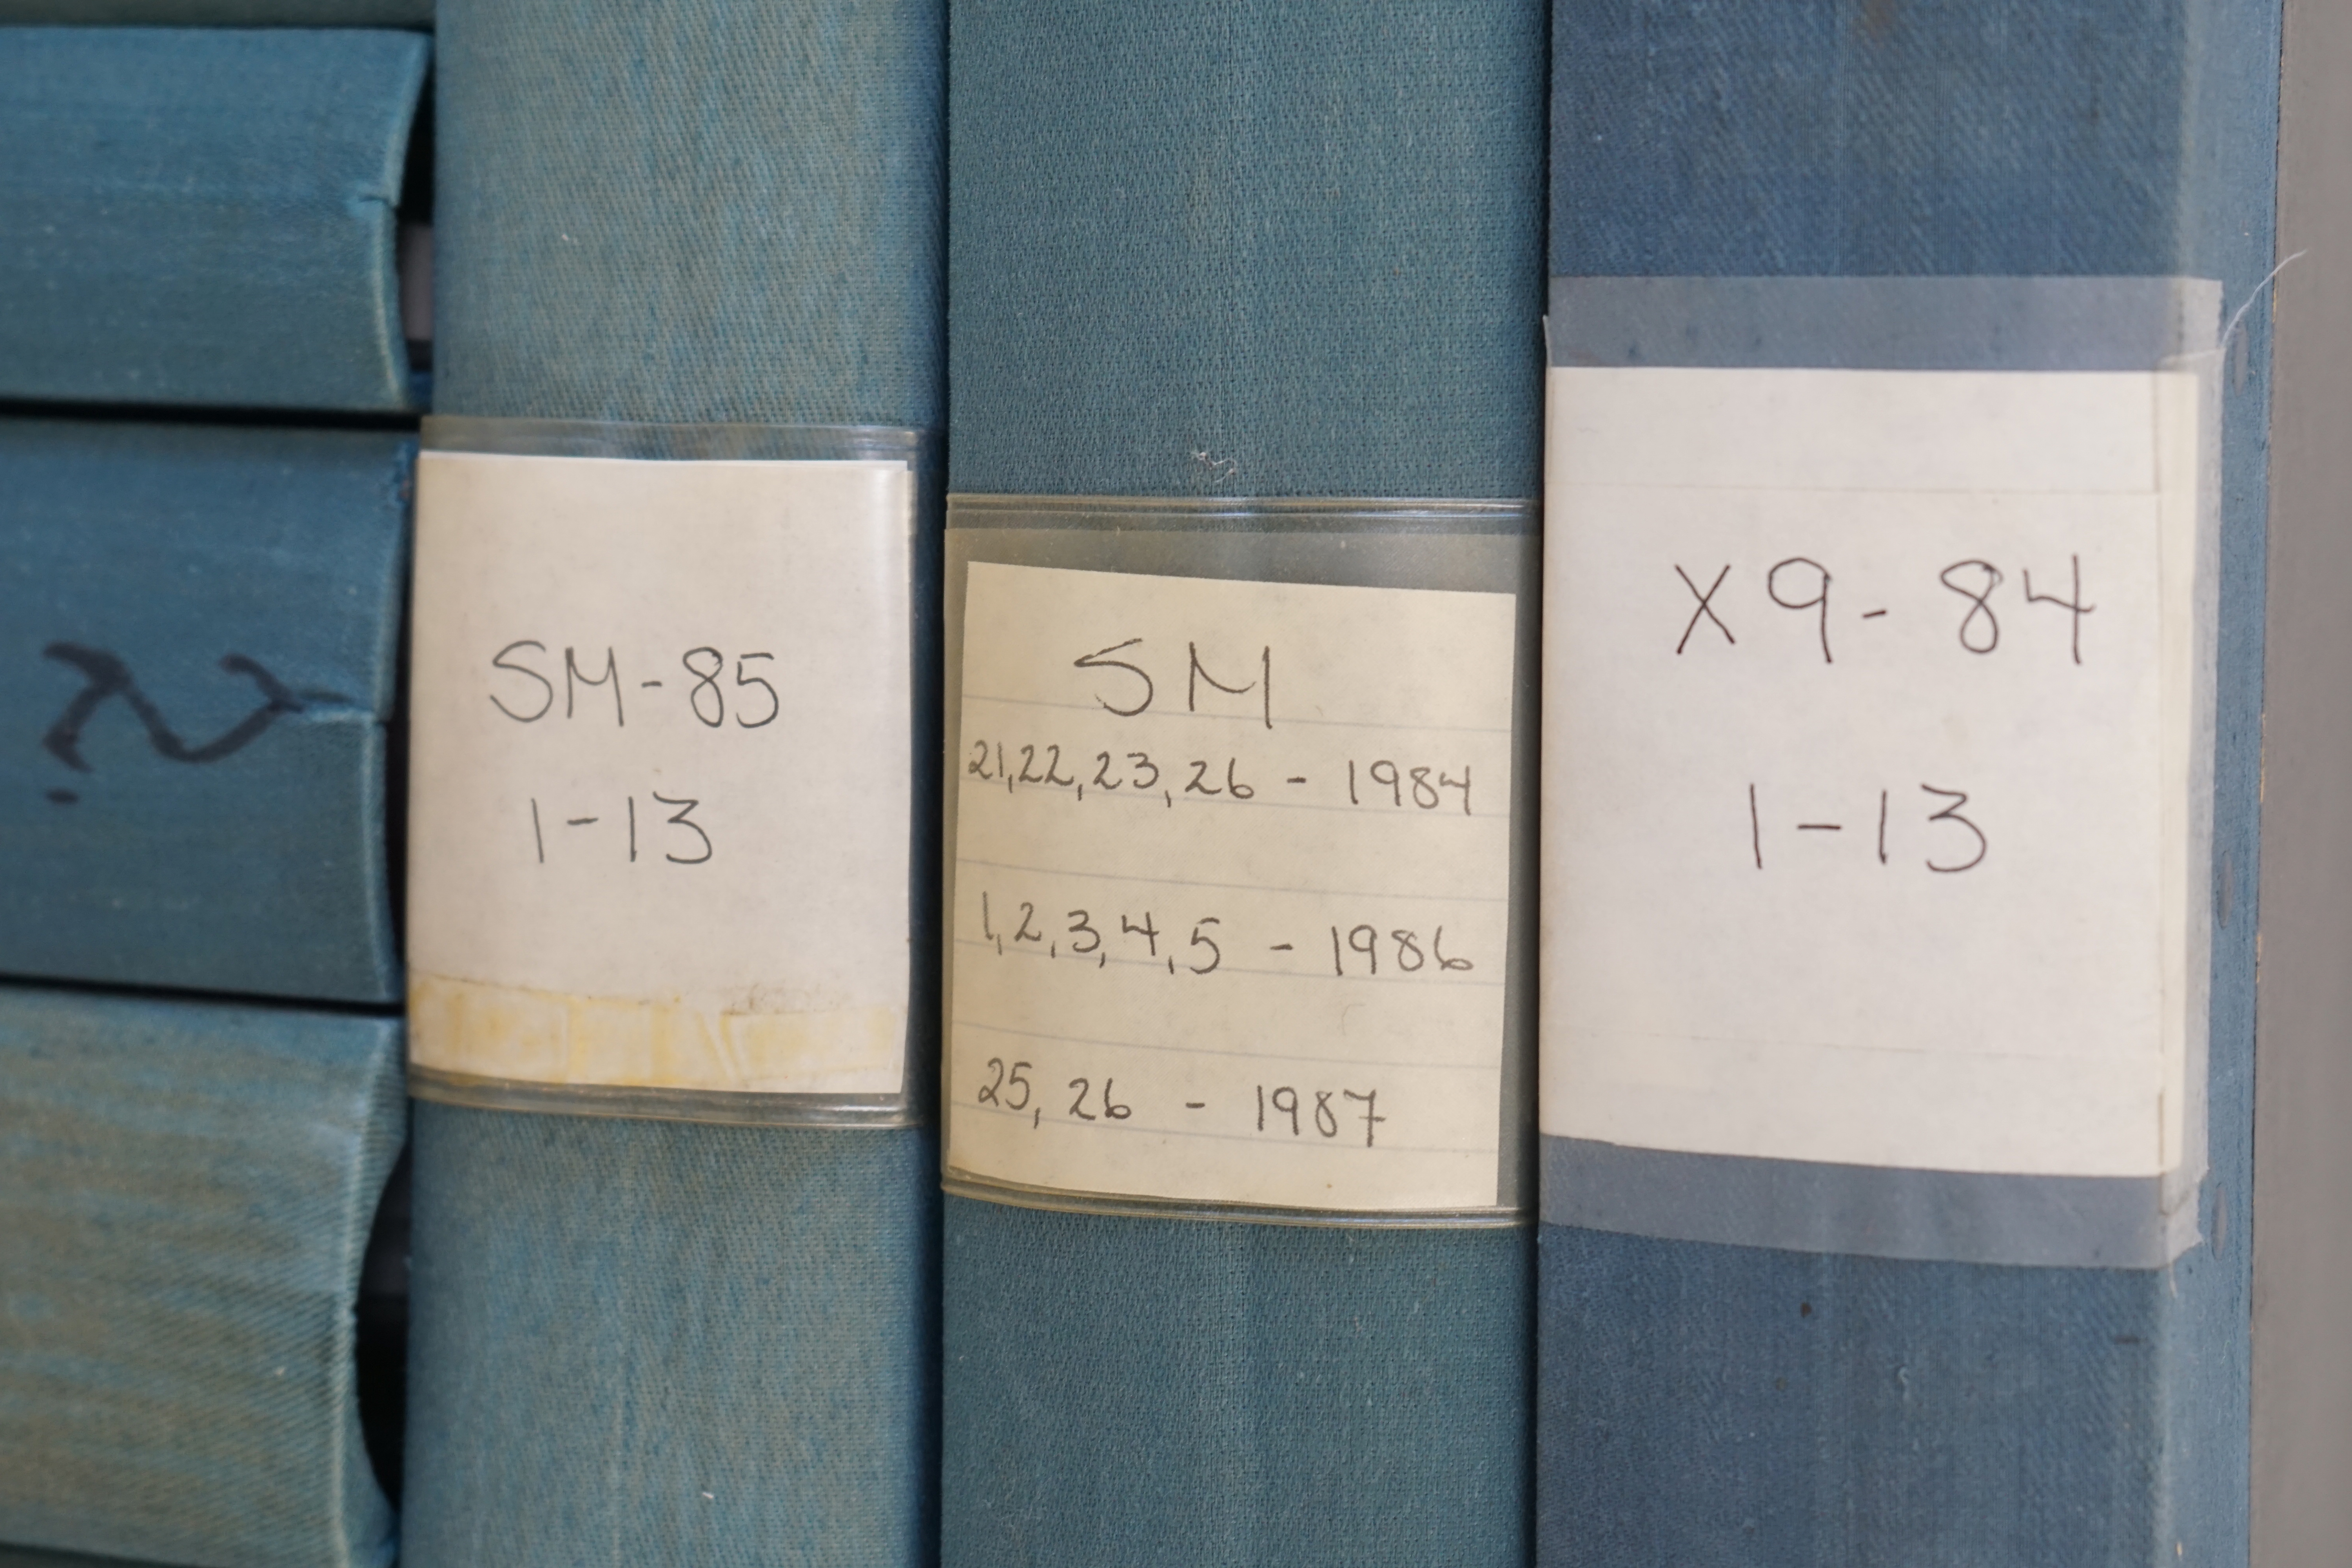 SM-85
1-13
SM
21,22,23,26 - 1984
1,2,3,4,5 - 1986
25, 26 - 1987
X9-84
1-13